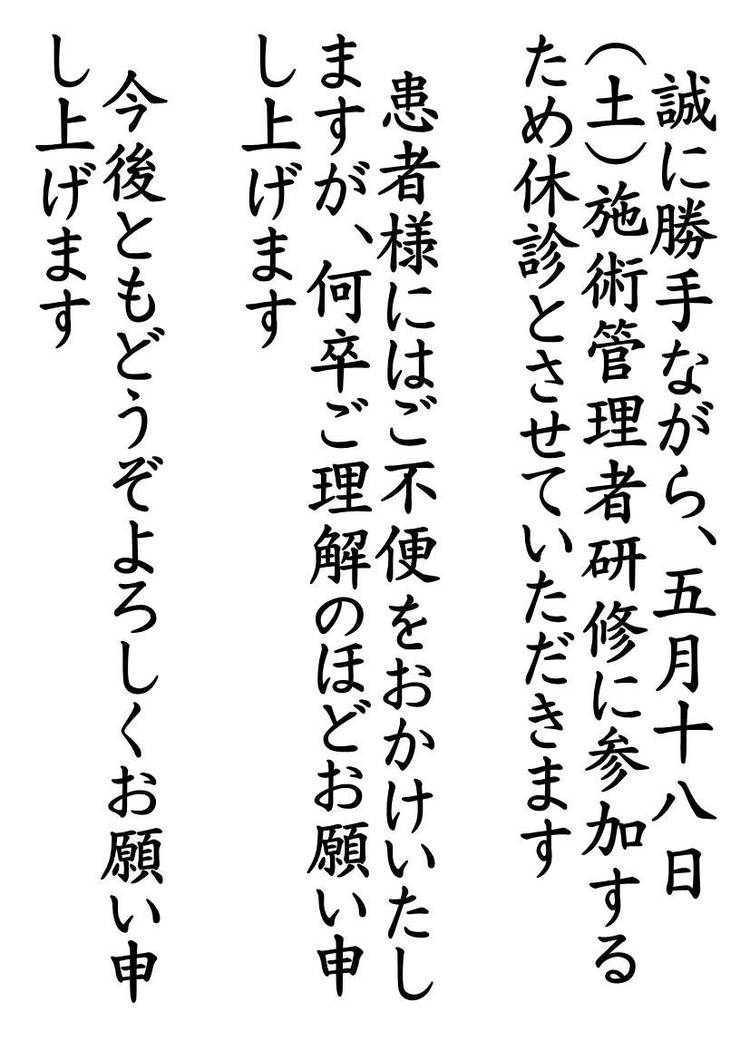 誠に勝手ながら、五月十八日
（土）施術管理者研修に参加する
ため休診とさせていただきます
患者様にはご不便をおかけいたし
ますが、何卒ご理解のほどお願い申
し上げます
今後ともどうぞよろしくお願い申
し上げます